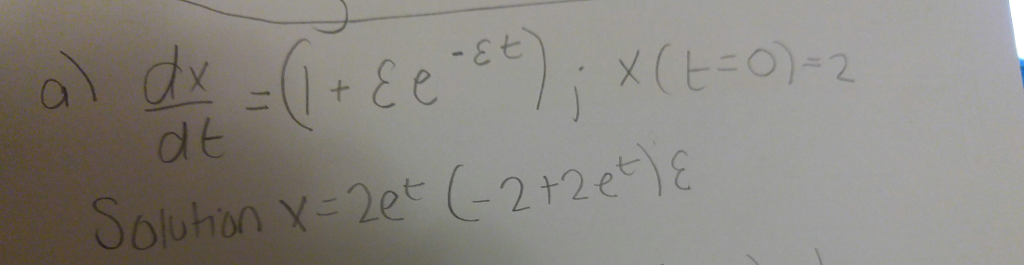 a) dx/dt = (1 + εe^{-εt}) ; x(t=0)=2
Solution x = 2e^t (-2+2e^t)ε